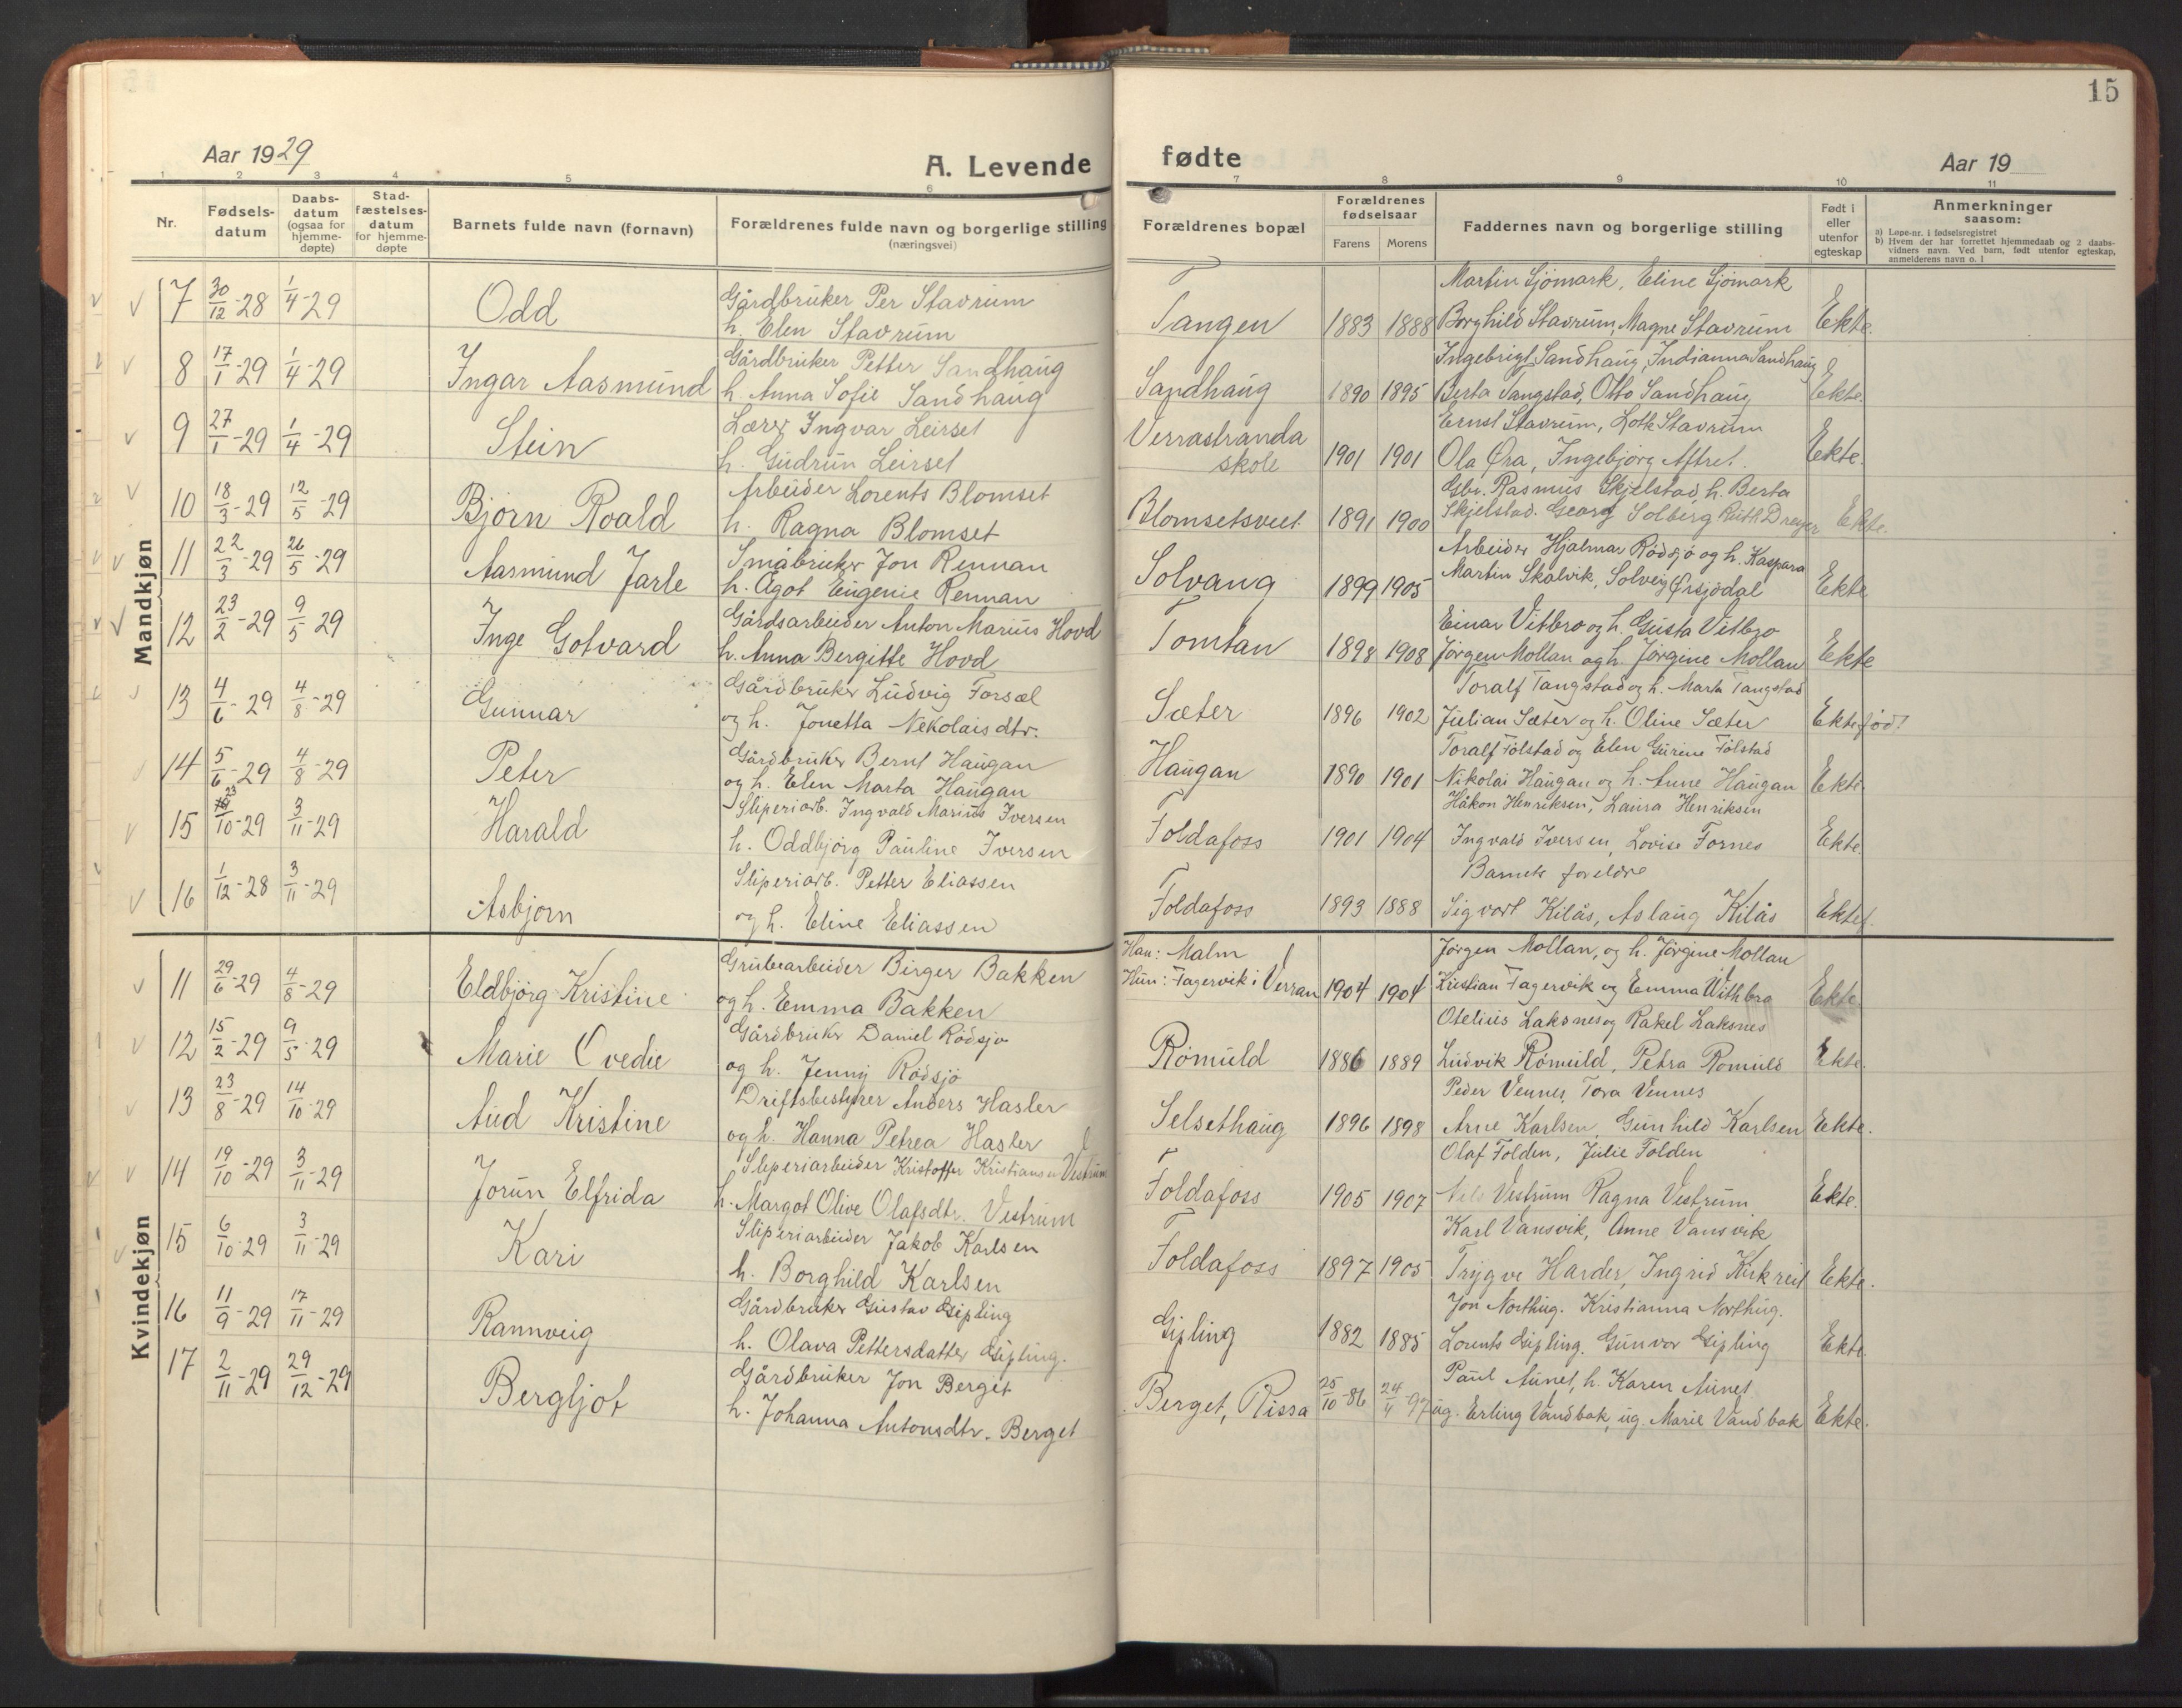 15
Aar 1929
A. Levende
fødte
Aar 19
1 2 3 4 5 6 7 8 9 10 11
Nr.
Fødsels-
datum
Daabs-
datum
(ogsaa for
hjemme-
døpte)
Stad-
fæstelses-
datum
for hjemme-
døpte
Barnets fulde navn (fornavn)
Forældrenes fulde navn og borgerlige stilling
(næringsvei)
Forældrenes bopæl
Forældrenes
fødselsaar
Farens Morens
Faddernes navn og borgerlige stilling
Født i
eller
utenfor
egteskap
Anmerkninger
saasom:
a) Løpe-nr. i fødselsregistret
b) Hvem der har forrettet hjemmedaab og 2 daabs-
vidners navn. Ved barn, født utenfor egteskap,
anmelderens navn o. l
Mandkjøn
7 30/12-28 1/4-29 Odd Gårdbruker Per Stavrum
h. Elen Stavrum
Tangen 1883 1888 Martin Sjömark, Eline Sjömark
Borghild Stavrum, Magne Stavrum Ekte.
8 17/1-29 1/4-29 Ingar Aasmund Gårdbruker Petter Sandhaug
h. Anna Sofie Sandhaug
Sandhaug 1890 1895 Ingebrigt Sandhaug, Indianna Sandhaug
Berta Tangstad, Otto Sandhaug Ekte.
9 27/1-29 1/4-29 Stein Lærer Ingvar Leirset
h. Gudrun Leirset
Verrastranda
skole 1901 1901 Ernst Stavrum, Lotte Stavrum
Ola Øra, Ingebjørg Aftret. Ekte.
10 18/3-29 12/5-29 Bjørn Roald Arbeider Lorents Blomset
h. Ragna Blomset
Blomsetsveet 1891 1900 Gbr. Rasmus Skjelstad, h. Berta
Skjelstad. Georg Solberg Ruth Dreyer Ekte.
11 22/3-29 26/5-29 Aasmund Jarle Småbruker Jon Rennan
h. Agot Eugenie Rennan
Solvang 1899 1905 Arbeider Hjalmar Rödsjö og h. Kaspara
Martin Skalvik, Solveig Ørsjödal Ekte
12 23/2-29 9/5 29 Inge Gotvard Gårdsarbeider Anton Marius Hovd
h. Anna Bergitte Hovd
Tomtan 1898 1908 Einar Vitbro og h. Gusta Vitbro
Jørgen Mollan og h. Jörgine Mollan Ekte
13 4/6-29 4/8-29 Gunnar Gårdbruker Ludvig Forsæl
og h. Jonetta Nekolaisdtr.
Sæter 1896 1902 Toralf Tangstad og h. Marta Tangstad
Julian Sæter og h. Oline Sæter Ektefød!
14 5/6-29 4/8-29 Peter Gårdbruker Bernt Haugan
og h. Elen Marta Haugan
Haugan 1890 1901 Toralf Fölstad og Elen Gurine Fölstad
Nikolai Haugan og h. Anne Haugan Ekte.
15 23/10-29 3/11-29 Harald Sliperiarb. Ingvald Marius Iversen
h. Oddbjörg Pauline Iversen
Foldafoss 1901 1904 Håkon Henriksen, Laura Henriksen
Ingvald Iversen, Lovise Fornes Ekte.
16 1/12-28 3/11-29 Asbjørn Sliperiarb. Petter Eliassen
og h. Eline Eliassen
Foldafoss 1893 1888 Barnets foreldre
Sigvart Kilås, Aslaug Kilås Ektef.
Kvindekjøn
11 29/6-29 4/8-29 Eldbjörg Kristine Grubearbeider Birger Bakken
og h. Emma Bakken
Han: Malm
Hun: Fagervik i Verran 1904 1904 Jørgen Mollan, og h. Jörgine Mollan
Kristian Fagervik og Emma Withbro Ekte
12 15/2-29 9/5-29 Marie Ovedie Gårdbruker Daniel Rödsjo
og h. Jenny Rödsjö
Römuld 1886 1889 Otelius Laksnes og Rakel Laksnes
Ludvik Römuld, Petra Romuld Ekte.
13 23/8-29 14/10-29 Aud Kristine Driftsbestyrer Anders Hasler
og h. Hanna Petrea Hasler
Selsethaug 1896 1898 Peder Vennes, Tora Vennes
Arne Karlsen, Gunhild Karlsen Ekte.
14 19/10-29 3/11-29 Jorun Elfrida Sliperiarbeider Kristoffer Kristiansen Vestrum
h. Margot Olive Olafsdtr. Vestrum
Foldafoss 1905 1907 Olaf Folden, Julie Folden
Nels Vestrum Ragna Vestrum Ekte.
15 6/10-29 3/11-29 Kari Sliperiarbeider Jakob Karlsen
h. Borghild Karlsen
Foldafoss 1897 1905 Karl Vansvik, Anne Vansvik
Trygve Harder, Ingrid Kirkreit Ekte.
16 11/9-29 17/11-29 Rannveig Gårdbruker Gustav Gipling
h. Olava Pettersdatter Gipling.
Gipling 1882 1885 Jon Northug. Kristianna Northug.
Lorents Gipling. Gunvor Gipling Ekte.
17 2/11-29 29/12-29 Bergljot Gårdbruker Jon Berget
h. Johanna Antonsdtr. Berget
Berget, Rissa 25/10-86 24/11-97 Paul Aunet, h. Karen Aunet
ug. Erling Vandbak, ug. Marie Vandbak Ekte.